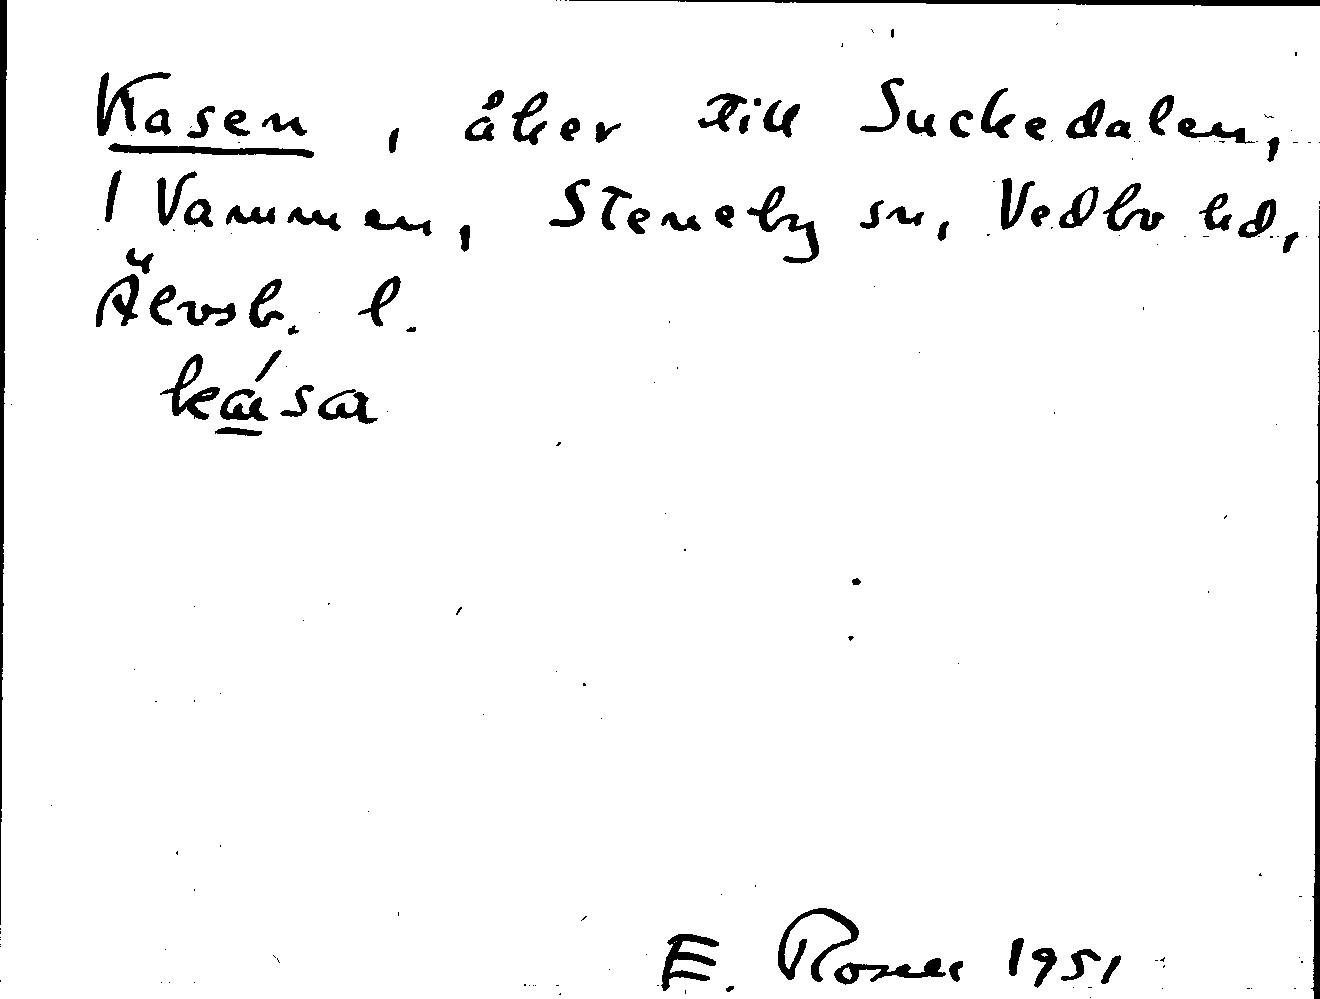 Kasen, åker till Suckedalen,
1 Vammen, Steneby sn, Vedbo hd,
Älvsb. l.
kása
E. Rosell 1951